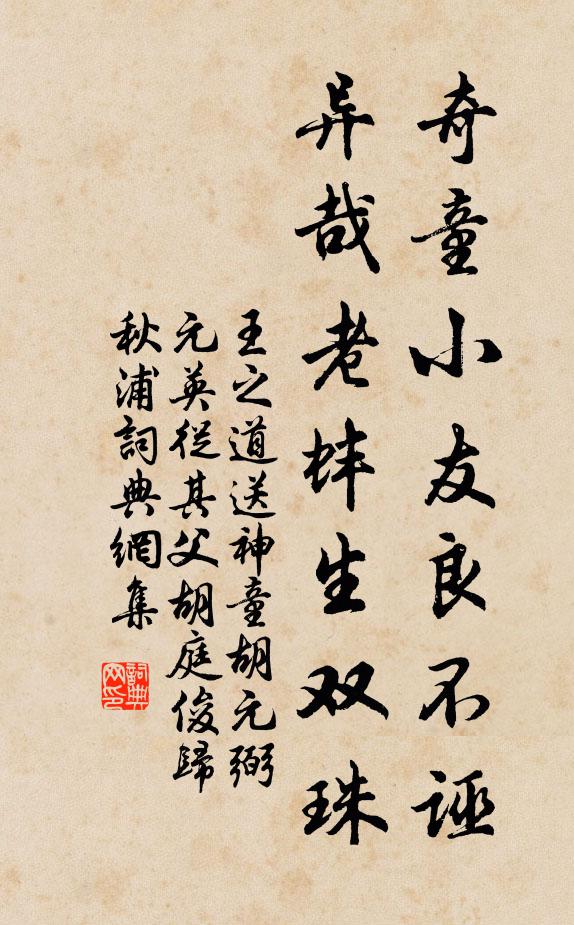 奇童小友良不诬
异哉老蚌生双珠
王之道送神童胡元弼
元英從其父胡庭俊歸
秋浦詞典網集
詞典网印